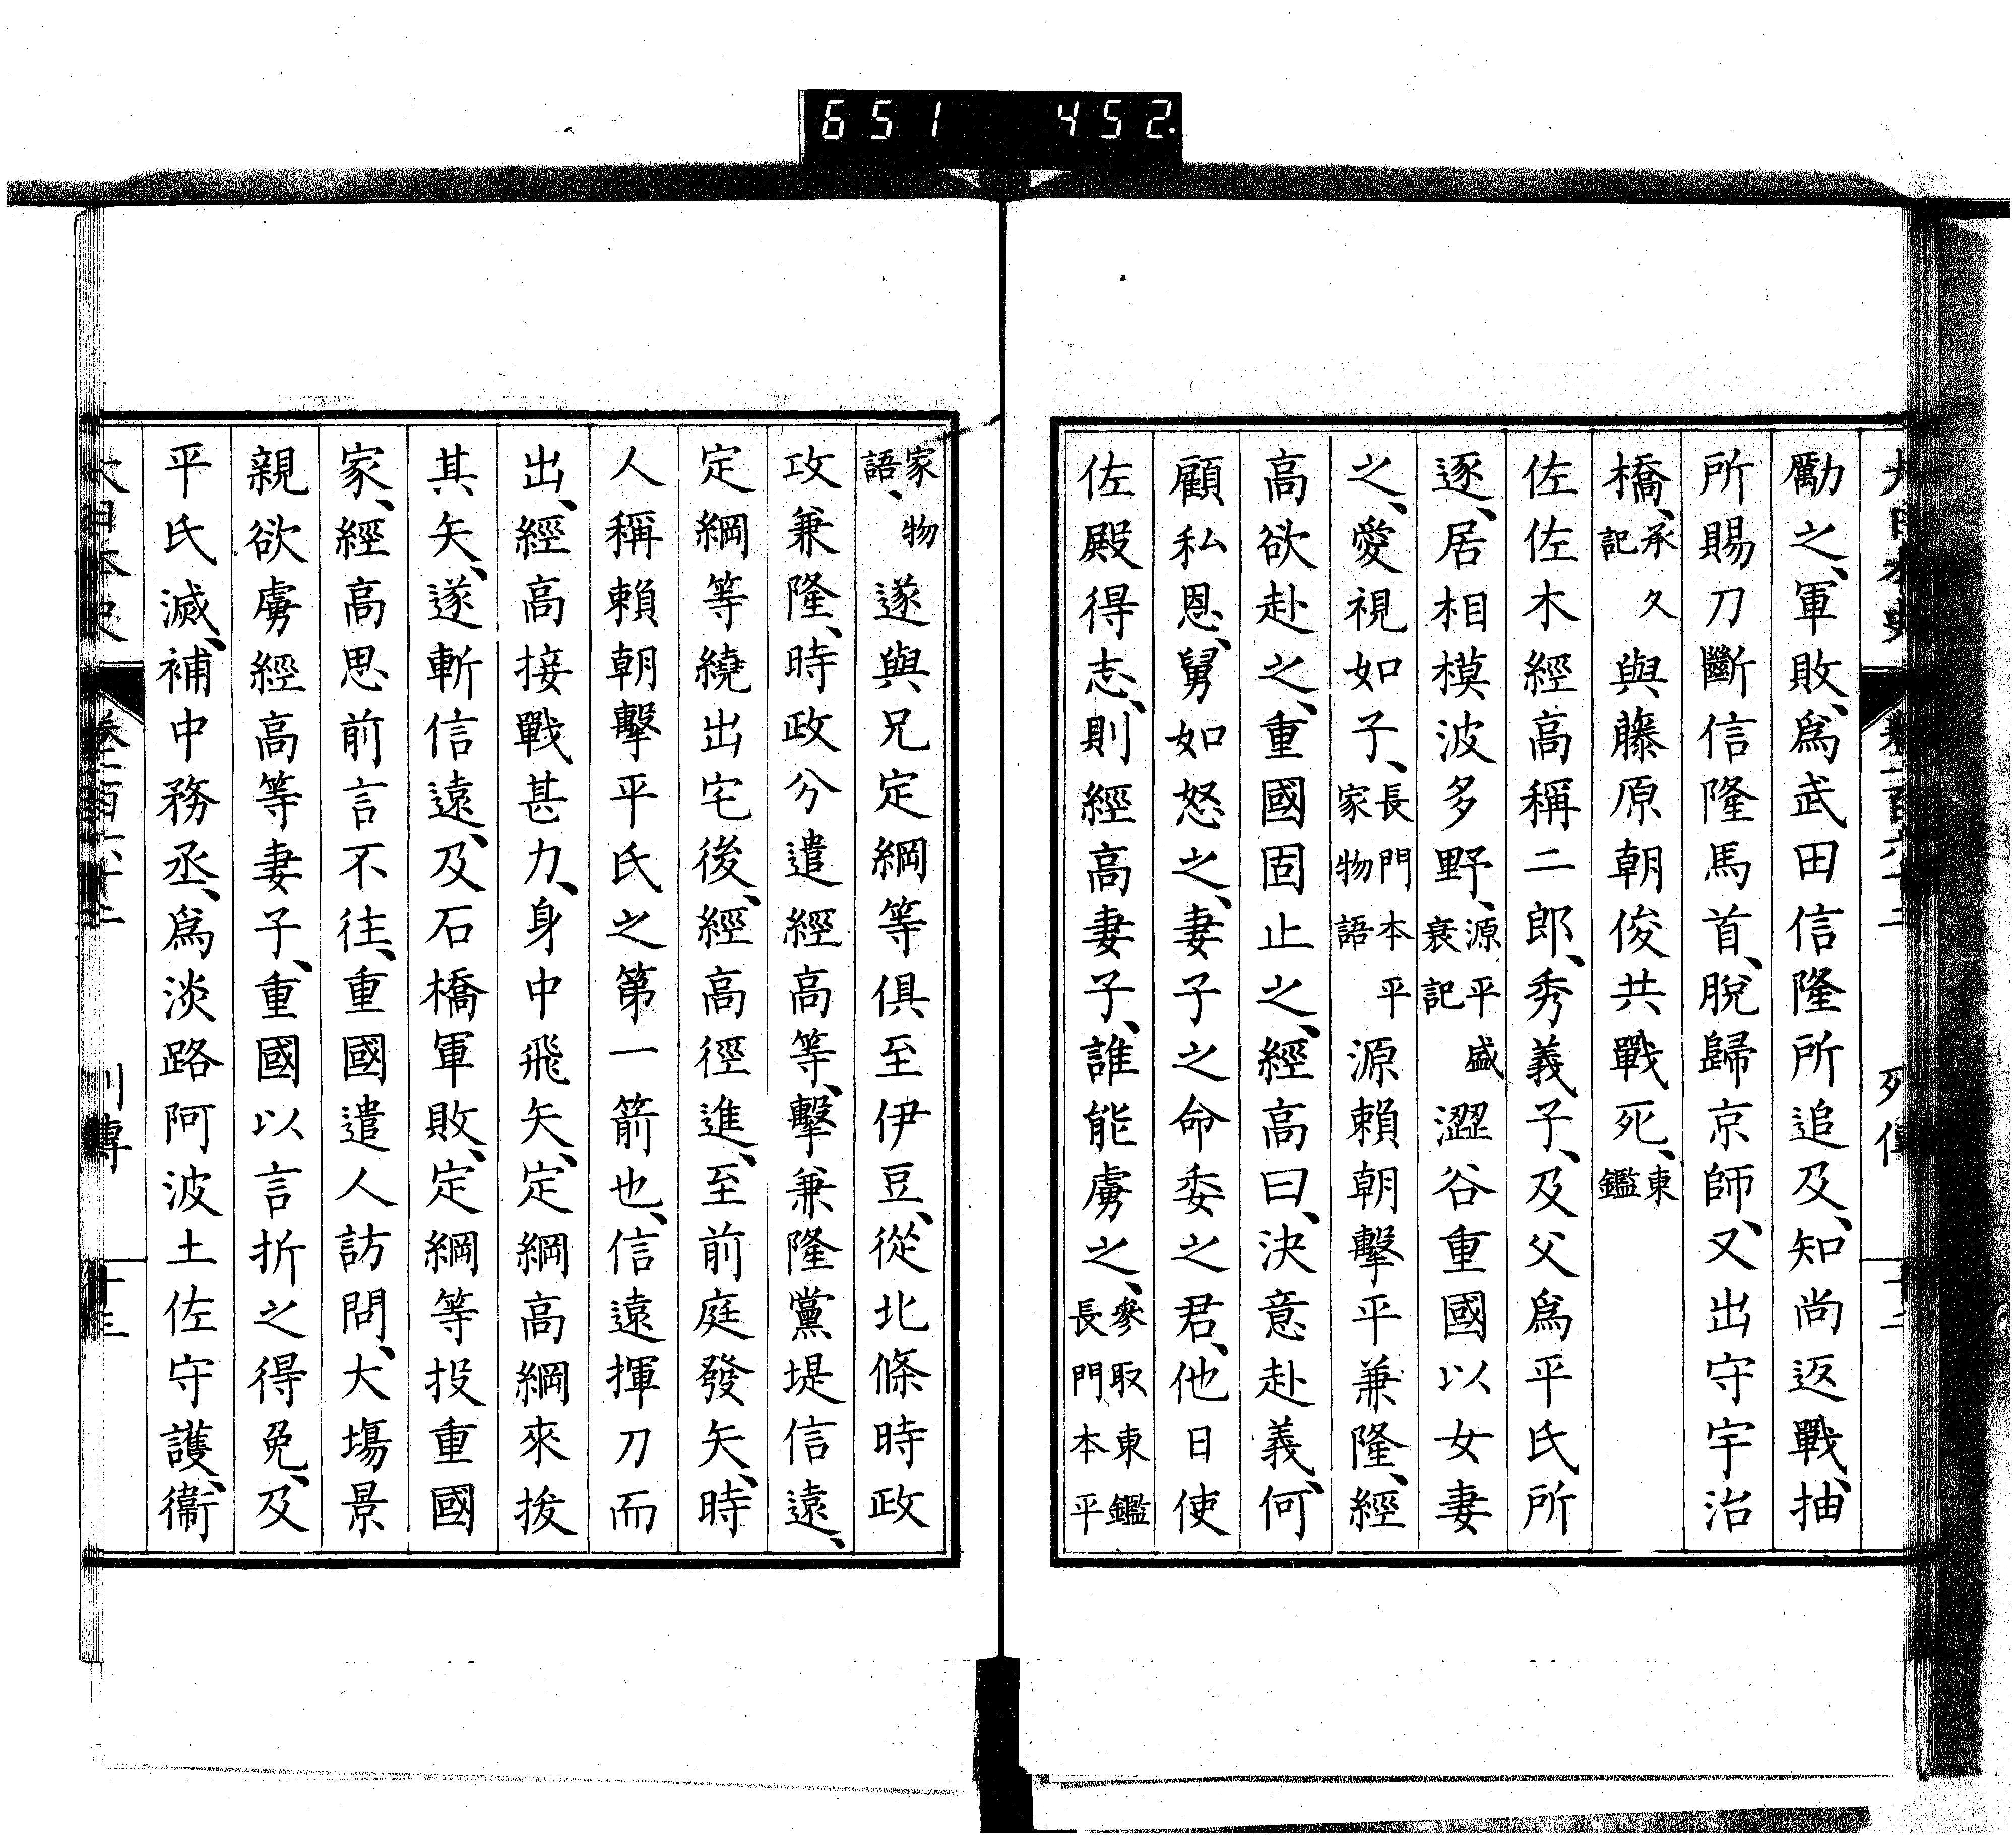 651 452
勵之、軍敗、爲武田信隆所追及、知尚返戰、抽
所賜刀斷信隆馬首、脫歸京師、又出守宇治
橋、承久記與藤原朝俊共戰死、東鑑
佐佐木經高稱二郎、秀義子、及父爲平氏所
逐、居相模波多野、源平盛衰記澀谷重國以女妻
之、愛視如子、長門本平家物語源賴朝擊平兼隆、經
高欲赴之、重國固止之、經高曰、決意赴義、何
顧私恩、舅如怒之、妻子之命委之君、他日使
佐殿得志、則經高妻子、誰能虜之、參取東鑑長門本平
家物語、遂與兄定綱等俱至伊豆、從北條時政
攻兼隆、時政分遣經高等、擊兼隆黨堤信遠、
定綱等繞出宅後、經高徑進、至前庭發矢、時
人稱賴朝擊平氏之第一箭也、信遠揮刀而
出、經高接戰甚力、身中飛矢、定綱高綱來拔
其矢、遂斬信遠、及石橋軍敗、定綱等投重國
家、經高思前言不往、重國遣人訪問、大場景
親欲虜經高等妻子、重國以言折之得免、及
平氏滅、補中務丞、爲淡路阿波土佐守護、衞